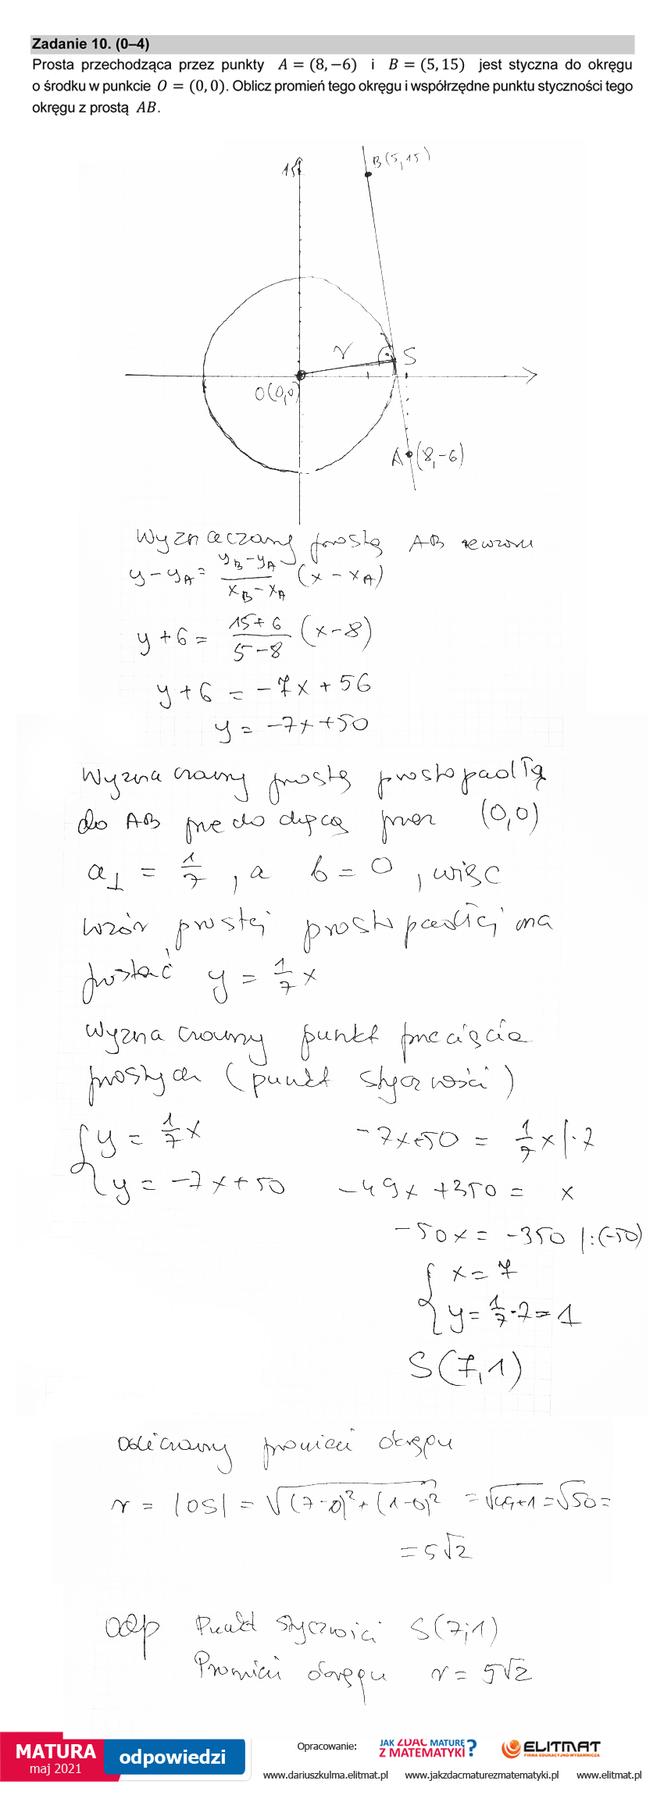 Zadanie 10. (0–4)
Prosta przechodząca przez punkty A = (8, −6) i B = (5, 15) jest styczna do okręgu
o środku w punkcie O = (0, 0). Oblicz promień tego okręgu i współrzędne punktu styczności tego
okręgu z prostą AB.
15
B(5,15)
r
S
O(0,0)
A (8,-6)
Wyznaczamy prostą AB ze wzoru
y-y_A = \frac{y_B-y_A}{x_B-x_A} (x-x_A)
y+6 = \frac{15+6}{5-8} (x-8)
y+6 = -7x+56
y = -7x+50
Wyznaczamy prostą prostopadłą
do AB przechodzącą przez (0,0)
a_⊥ = \frac{1}{7}, a b=0, więc
wzór prostej prostopadłej ma
postać y = \frac{1}{7}x
Wyznaczamy punkt przecięcia
prostych (punkt styczności)
{ y = \frac{1}{7}x -7x+50 = \frac{1}{7}x |·7
y = -7x+50 -49x+350 = x
-50x = -350 |:(-50)
{ x = 7
y = \frac{1}{7}·7 = 1
S(7,1)
Obliczamy promień okręgu
r = |OS| = √((7-0)²+(1-0)²) = √(49+1) = √50 =
= 5√2
Odp Punkt styczności S(7;1)
Promień okręgu r = 5√2
MATURA
maj 2021
odpowiedzi
Opracowanie:
JAK ZDAĆ MATURĘ
Z MATEMATYKI?
ELITMAT
FIRMA EDUKACYJNO-WYDAWNICZA
www.dariuszkulma.elitmat.pl www.jakzdacmaturezmatematyki.pl www.elitmat.pl